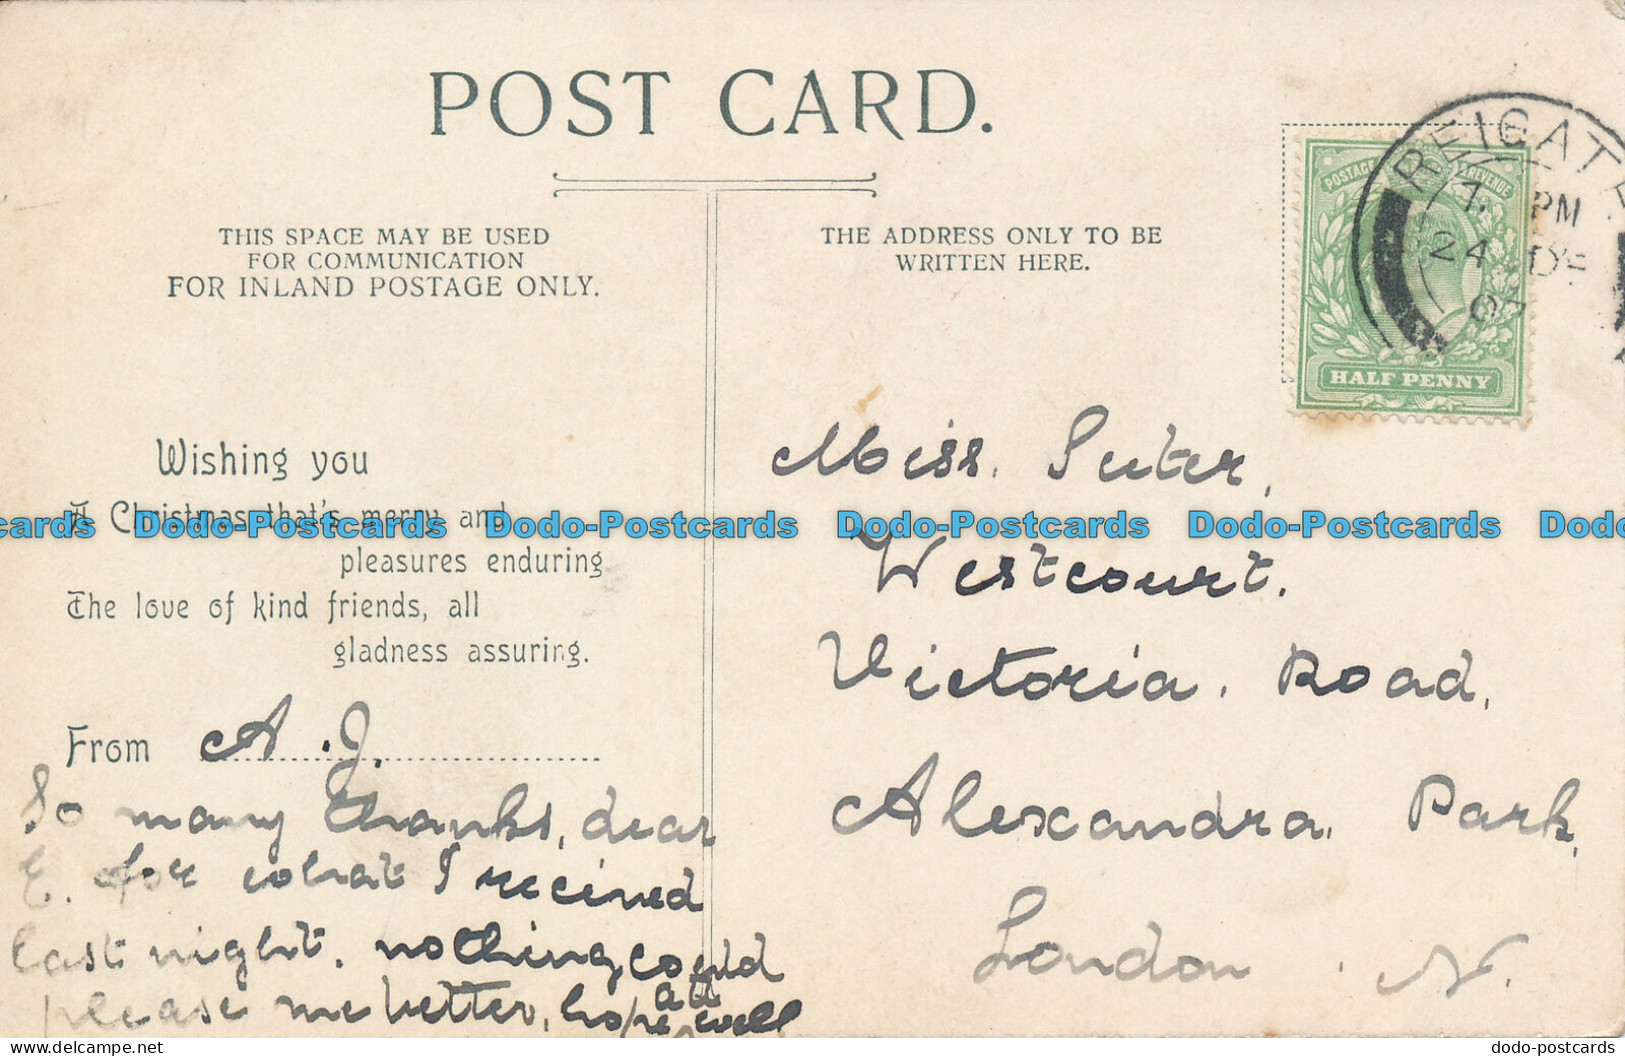 POST CARD.
THIS SPACE MAY BE USED
FOR COMMUNICATION
FOR INLAND POSTAGE ONLY.
THE ADDRESS ONLY TO BE
WRITTEN HERE.
POSTAGE & REVENUE
HALF PENNY
REIGATE
PM
24 DE
07
Wishing you
A Christmas that's merry and
pleasures enduring
The love of kind friends, all
gladness assuring.
From A. J.
So many thanks, dear
E. for what I received
last night. nothing could
please me better, hope all
well
Miss. Suter,
Westcourt.
Victoria. Road,
Alexandra. Park,
London. N.
Dodo-Postcards Dodo-Postcards Dodo-Postcards Dodo-Postcards
www.delcampe.net
dodo-postcards